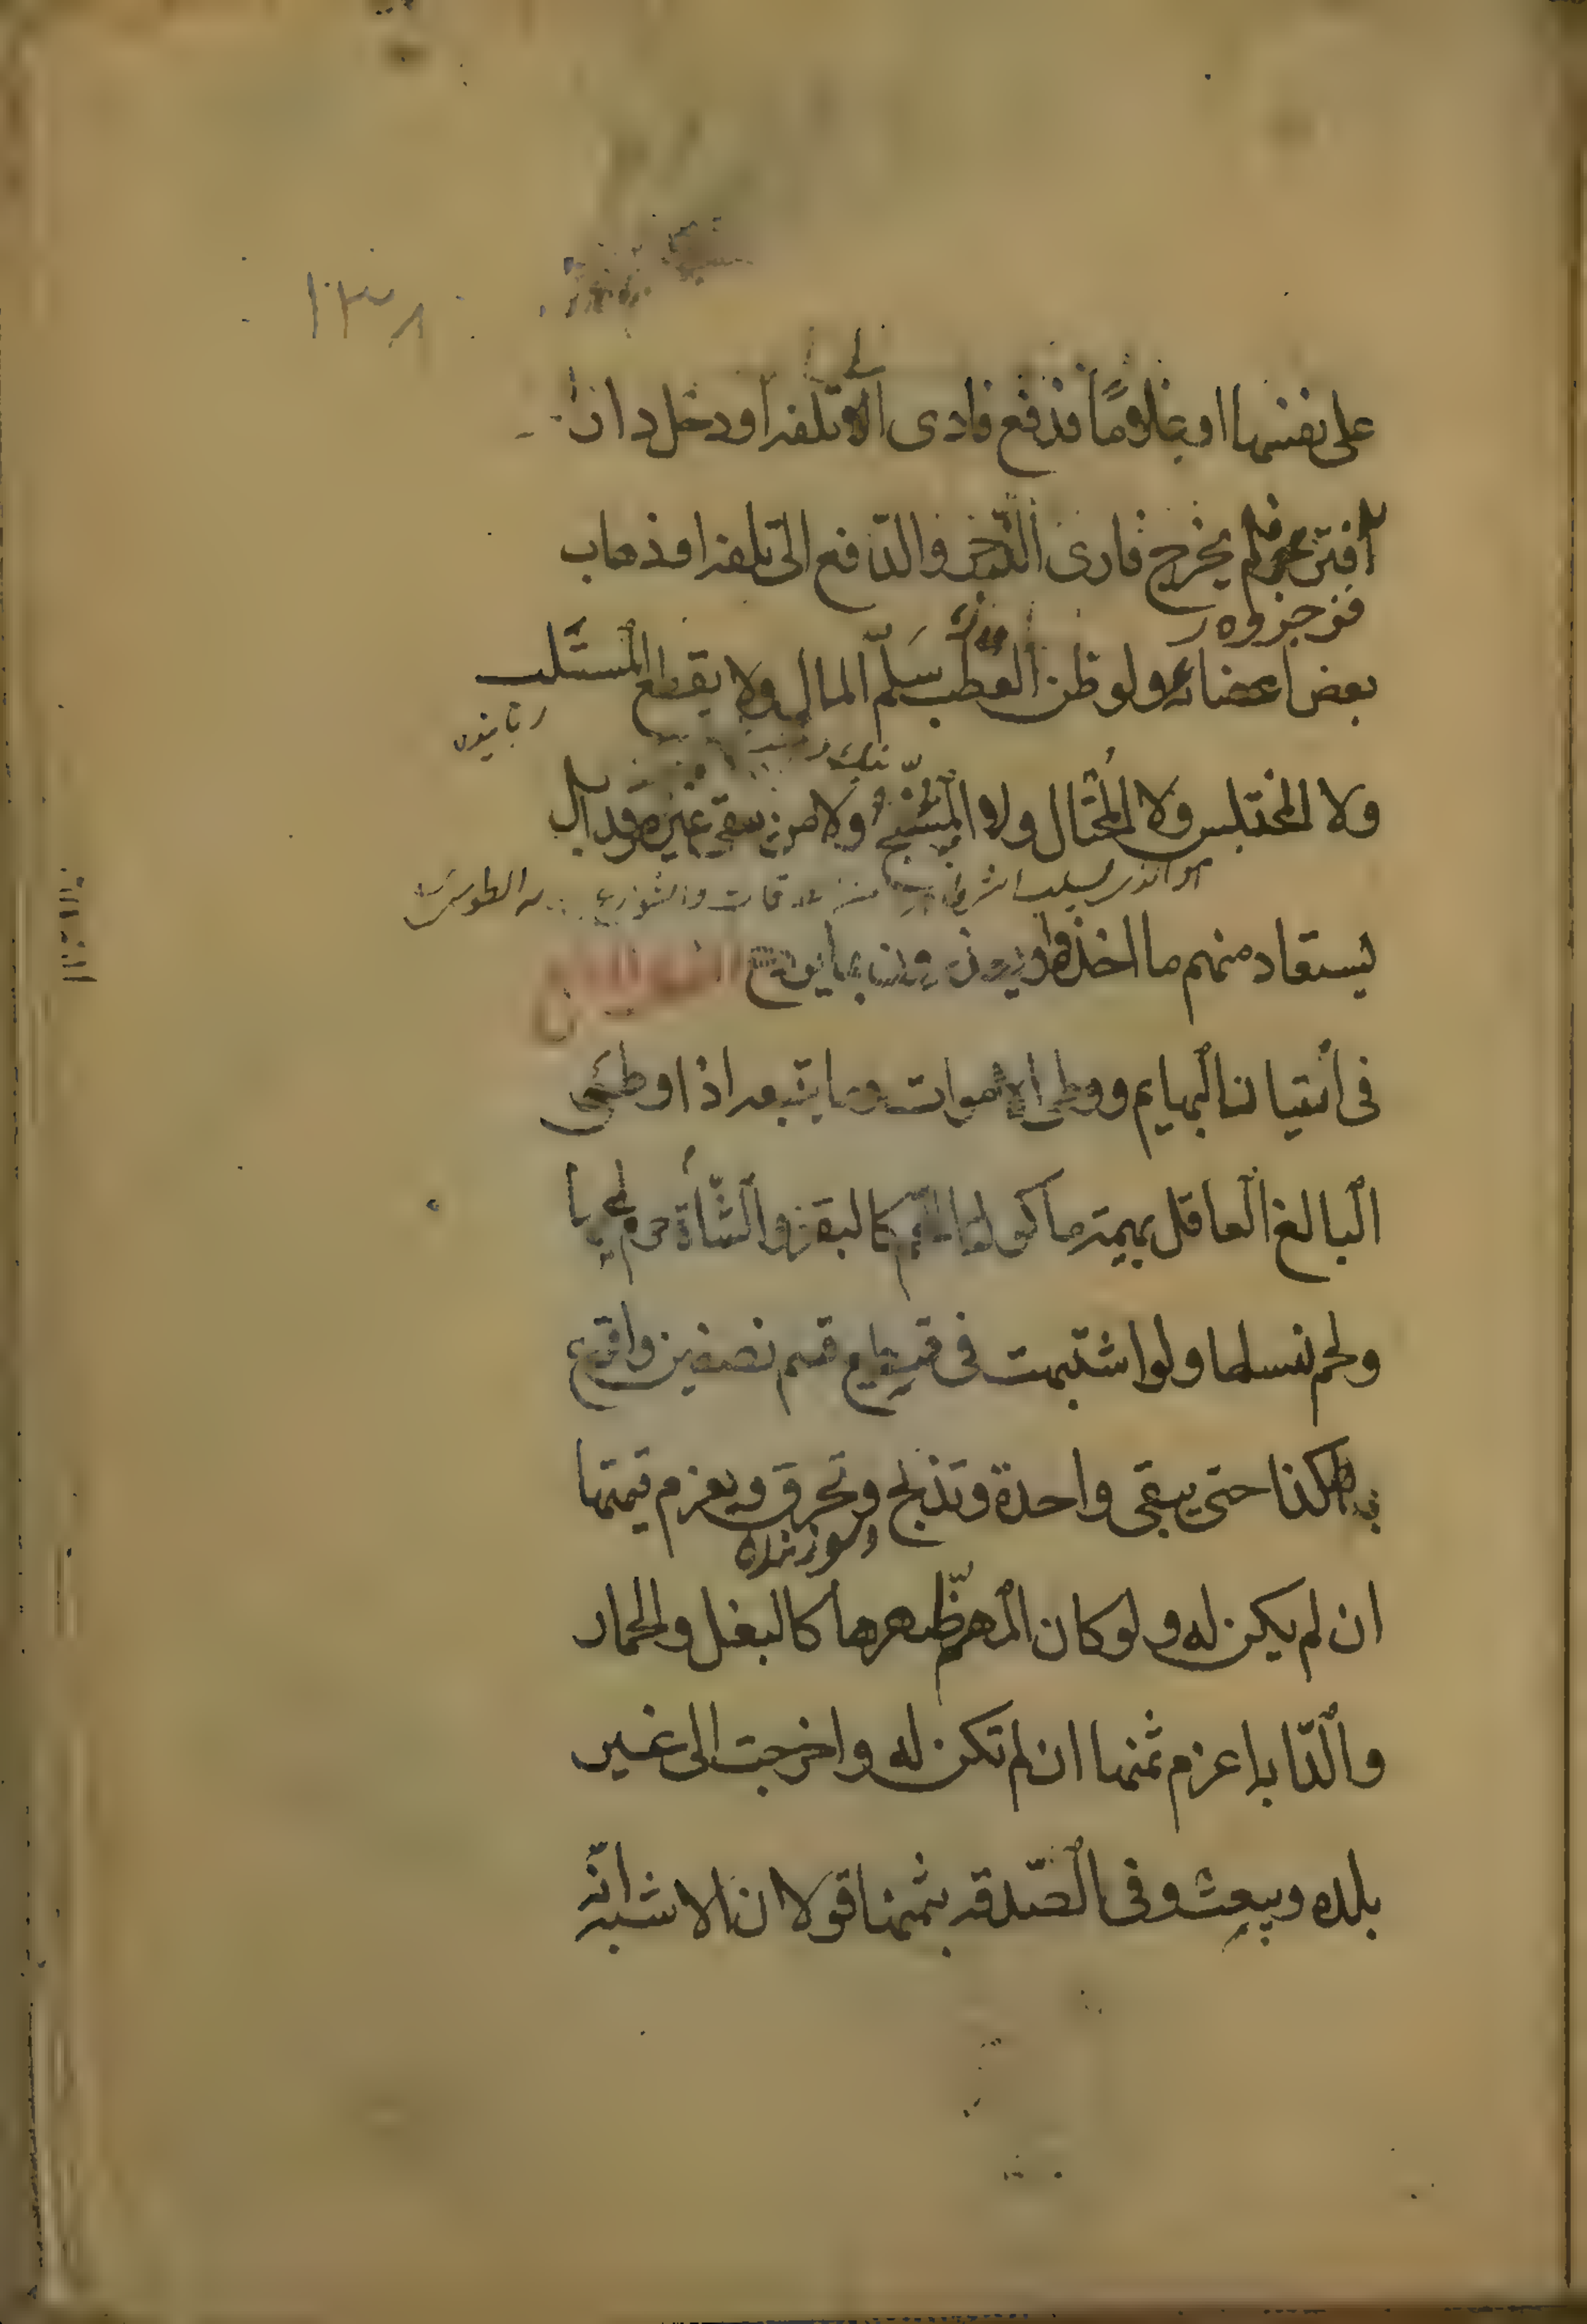 ١٣٨
على نفسها او غلامًا فدفع فادى الى تلفه او دخل دارا
فلم يخرج فادى الزجر والدّفع الى تلفه او ذهاب
فزجروه
بعض اعضائه ولو ظن العطب سَلّم المال ولا يقطع المستلب
ربايند
ولا المختلس ولا المُحتال ولا المبنّج ولا من سقى غيره مرقدا بل
هو الذى يسلب الطرقات والشوارع
يستعاد منهم ما اخذوا ويعزرون بما يردع
فى اتيان البهايم ووطى الاموات وما يتبعه اذا وطى
البالغ العاقل بهيمة ماكولة اللحم كالبقر والشّاة حرم لحمها
ولحم نسلها ولو اشتبهت فى قطيع قسم نصفين واقرع
هكذا حتى يبقى واحدة وتذبح وتحرق ويغرم قيمتها
وسوزنده
ان لم يكن له ولو كان المهم ظهرها كالبغل والحمار
والدّابة اغرم ثمنها ان لم تكن له واخرجت الى غير
بلده وبيعت وفى الصّدقه بثمنها قولان الاشبه انّه